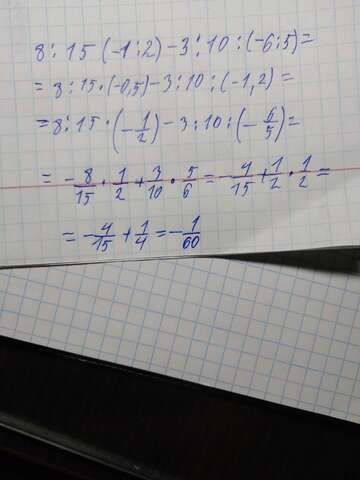 8:15(-1:2)-3:10:(-6:5)=
=8:15·(-0,5)-3:10:(-1,2)=
=8:15·(-1/2)-3:10:(-6/5)=
=-8/15·1/2+3/10·5/6=-4/15+1/2·1/2=
=-4/15+1/4=-1/60